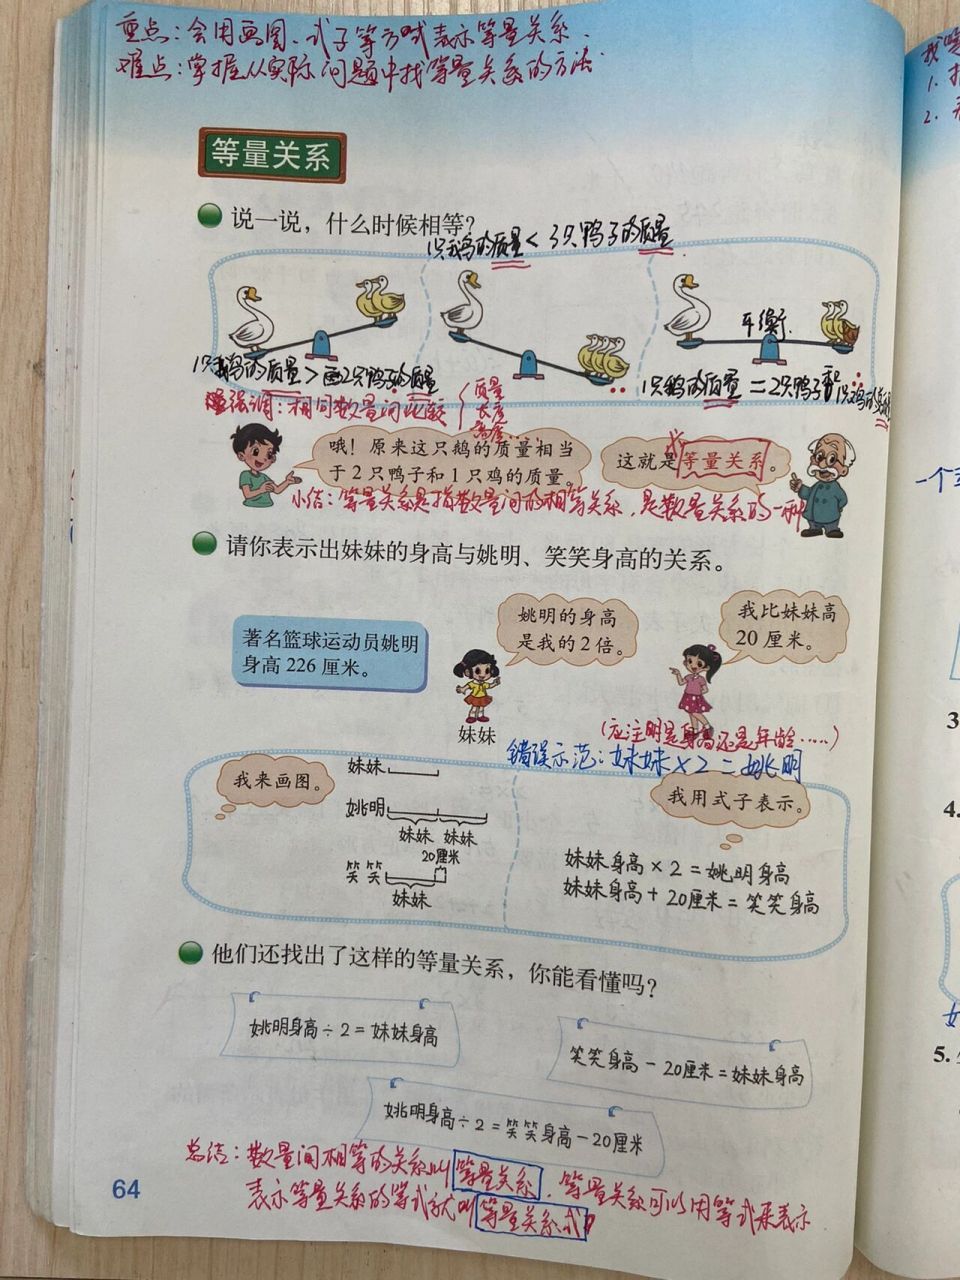 重点：会用画图、式子等方式表示等量关系.
难点：掌握从实际问题中找等量关系的方法
等量关系
说一说，什么时候相等？
1只鹅的质量<3只鸭子的质量
平衡.
1只鹅的质量>2只鸭子的质量
1只鹅的质量=2只鸭子和1只鸡的质量
强调：相同数量间比较
质量
长度
高度...
哦！原来这只鹅的质量相当
于2只鸭子和1只鸡的质量。
这就是等量关系。
小结：等量关系是指数量间的相等关系，是数量关系的一种
请你表示出妹妹的身高与姚明、笑笑身高的关系。
著名篮球运动员姚明
身高226厘米。
姚明的身高
是我的2倍。
我比妹妹高
20厘米。
妹妹
(应注明是身高还是年龄……)
错误示范：妹妹×2=姚明
我来画图。
妹妹
姚明
妹妹 妹妹
20厘米
笑笑
妹妹
我用式子表示。
妹妹身高×2=姚明身高
妹妹身高+20厘米=笑笑身高
他们还找出了这样的等量关系，你能看懂吗？
姚明身高÷2=妹妹身高
笑笑身高-20厘米=妹妹身高
姚明身高÷2=笑笑身高-20厘米
总结：数量间相等的关系叫等量关系，等量关系可以用等式来表示
表示等量关系的等式就叫等量关系式
64
1.
2.
一个
3
4.
5.